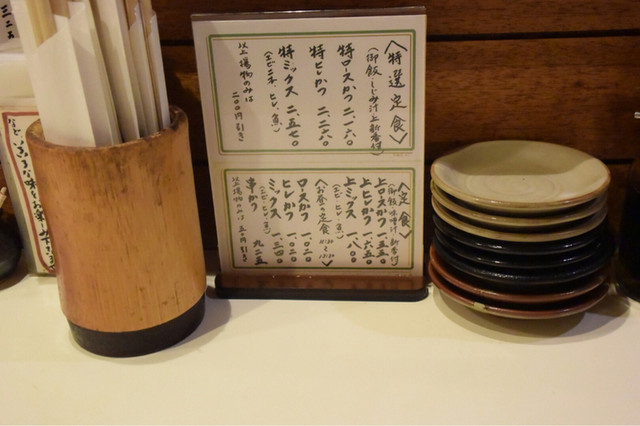 〈特選定食〉
(御飯・しじみ汁上新香付)
特ロースかつ 二、一六〇
特ヒレかつ 二、二六〇
特ミックス 二、五七〇
(エビ二本、ヒレ、魚)
以上揚物のみは
二〇〇円引き
〈定食〉
(御飯味噌汁新香付)
上ロースかつ 一、五五〇
上ヒレかつ 一、六五〇
上ミックス 一、八〇〇
(エビ、ヒレ、魚)
〈お昼の定食〉
ロースかつ 一、〇二〇
ヒレかつ 一、〇二〇
ミックス 一、三四〇
(エビ、ヒレ、魚)
串かつ 九二五
以上揚物のみは 五〇円引き